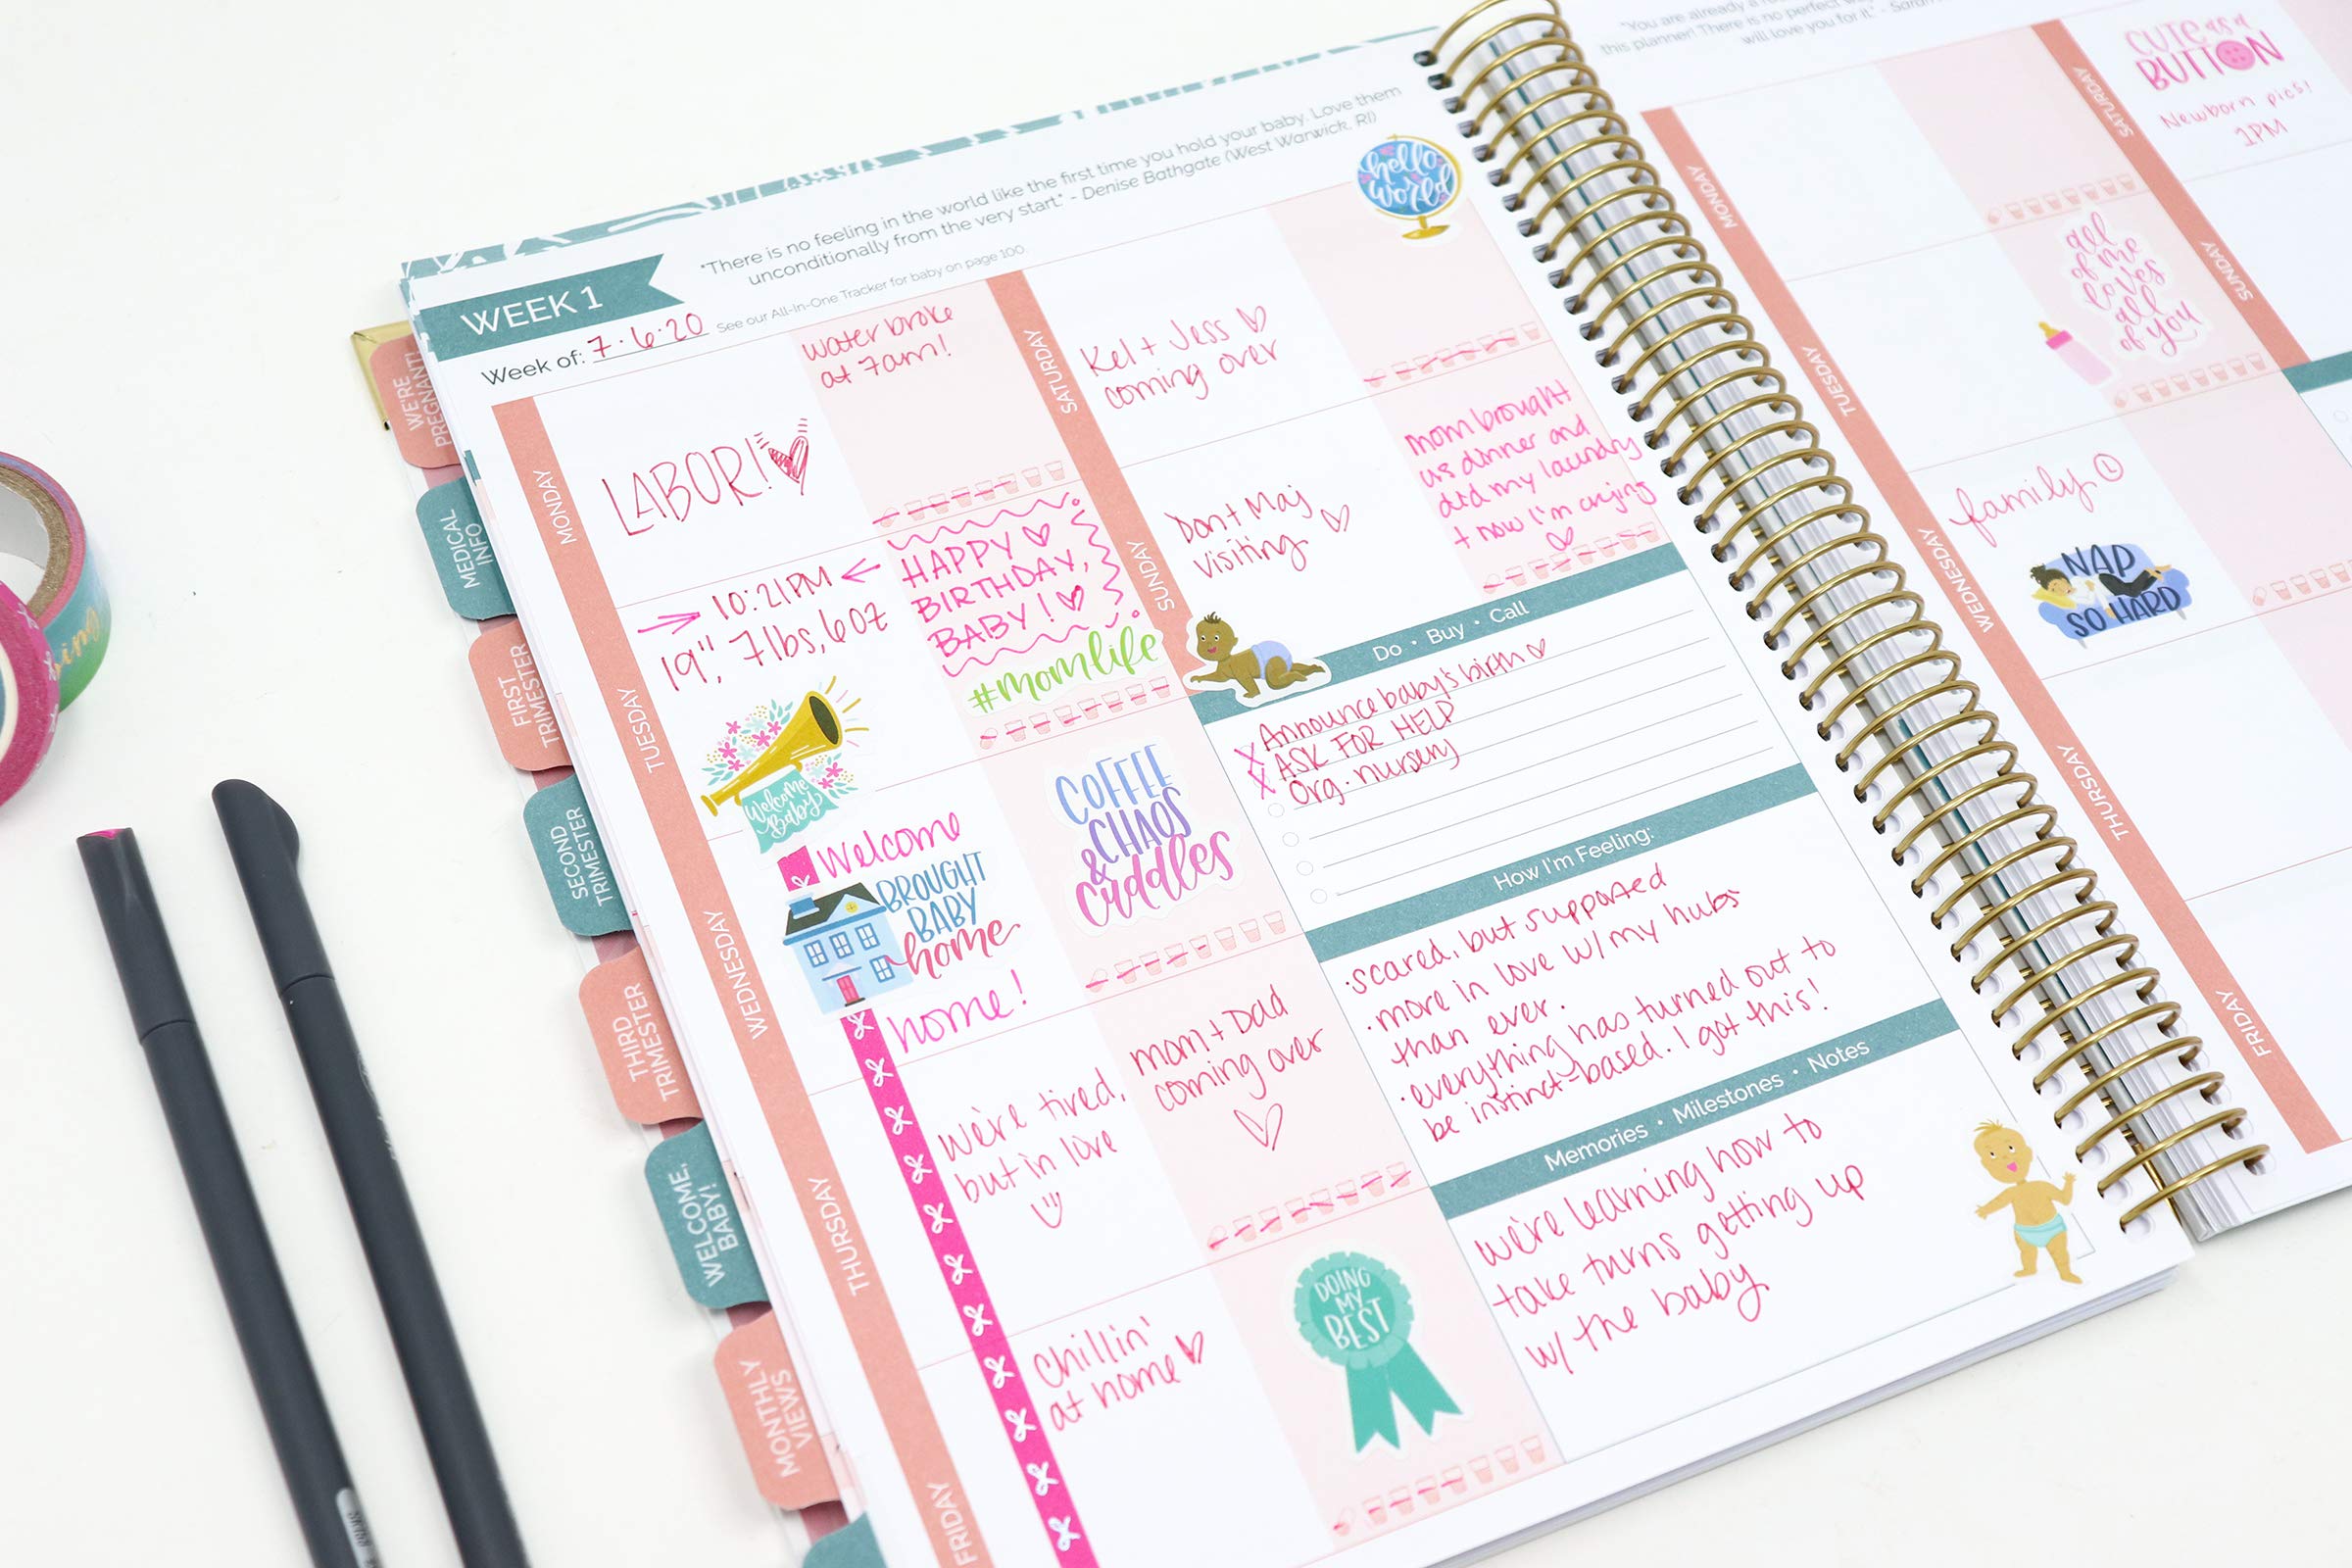 WE'RE
PREGNANT!
MEDICAL
INFO
FIRST
TRIMESTER
SECOND
TRIMESTER
THIRD
TRIMESTER
WELCOME,
BABY!
MONTHLY
VIEWS
WEEK 1
"There is no feeling in the world like the first time you hold your baby. Love them
unconditionally from the very start." - Denise Bathgate (West Warwick, RI)
Week of: 7.6.20 See our All-In-One Tracker for baby on page 100.
hello
world
MONDAY
LABOR!
water broke
at 7am!
TUESDAY
10:21PM
19", 7lbs, 6oz
HAPPY
BIRTHDAY,
BABY!
#momlife
Welcome
Baby
WEDNESDAY
Welcome
BROUGHT
BABY
home
home!
COFFEE
CHAOS
& cuddles
THURSDAY
We're tired,
but in love
mom + Dad
coming over
FRIDAY
Chillin'
at home
DOING
MY
BEST
SATURDAY
Kel + Jess
coming over
SUNDAY
Visiting
mom brought
us dinner and
did my laundry
+ now I'm crying
Do • Buy • Call
X Announce baby's birth
X ASK FOR HELP
Org. nursery
How I'm Feeling:
·scared, but supported
·more in love w/ my hubs
than ever.
·everything has turned out to
be instinct-based. I got this!
Memories • Milestones • Notes
we're learning how to
take turns getting up
w/ the baby
"You are already a
this planner! There is no perfect
will love you for it." -
MONDAY
TUESDAY
all
of me
loves
all
of you
WEDNESDAY
family
NAP
SO HARD
THURSDAY
FRIDAY
SATURDAY
CUTE as a
BUTTON
Newborn pics!
1PM
SUNDAY